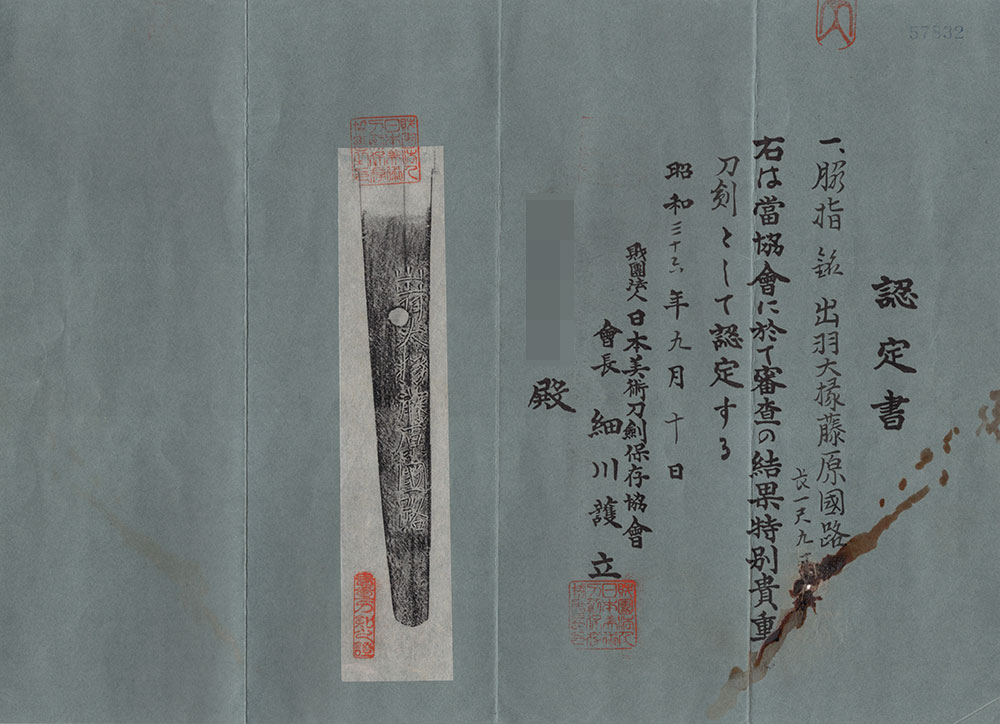 57832
認定書
一、脇指 銘 出羽大掾藤原國路
長一尺九寸
右は當協會に於て審査の結果特別貴重
刀剣として認定する
昭和三十六年九月十日
財團法人日本美術刀劍保存協會
會長 細川護立
殿
出羽大掾藤原國路